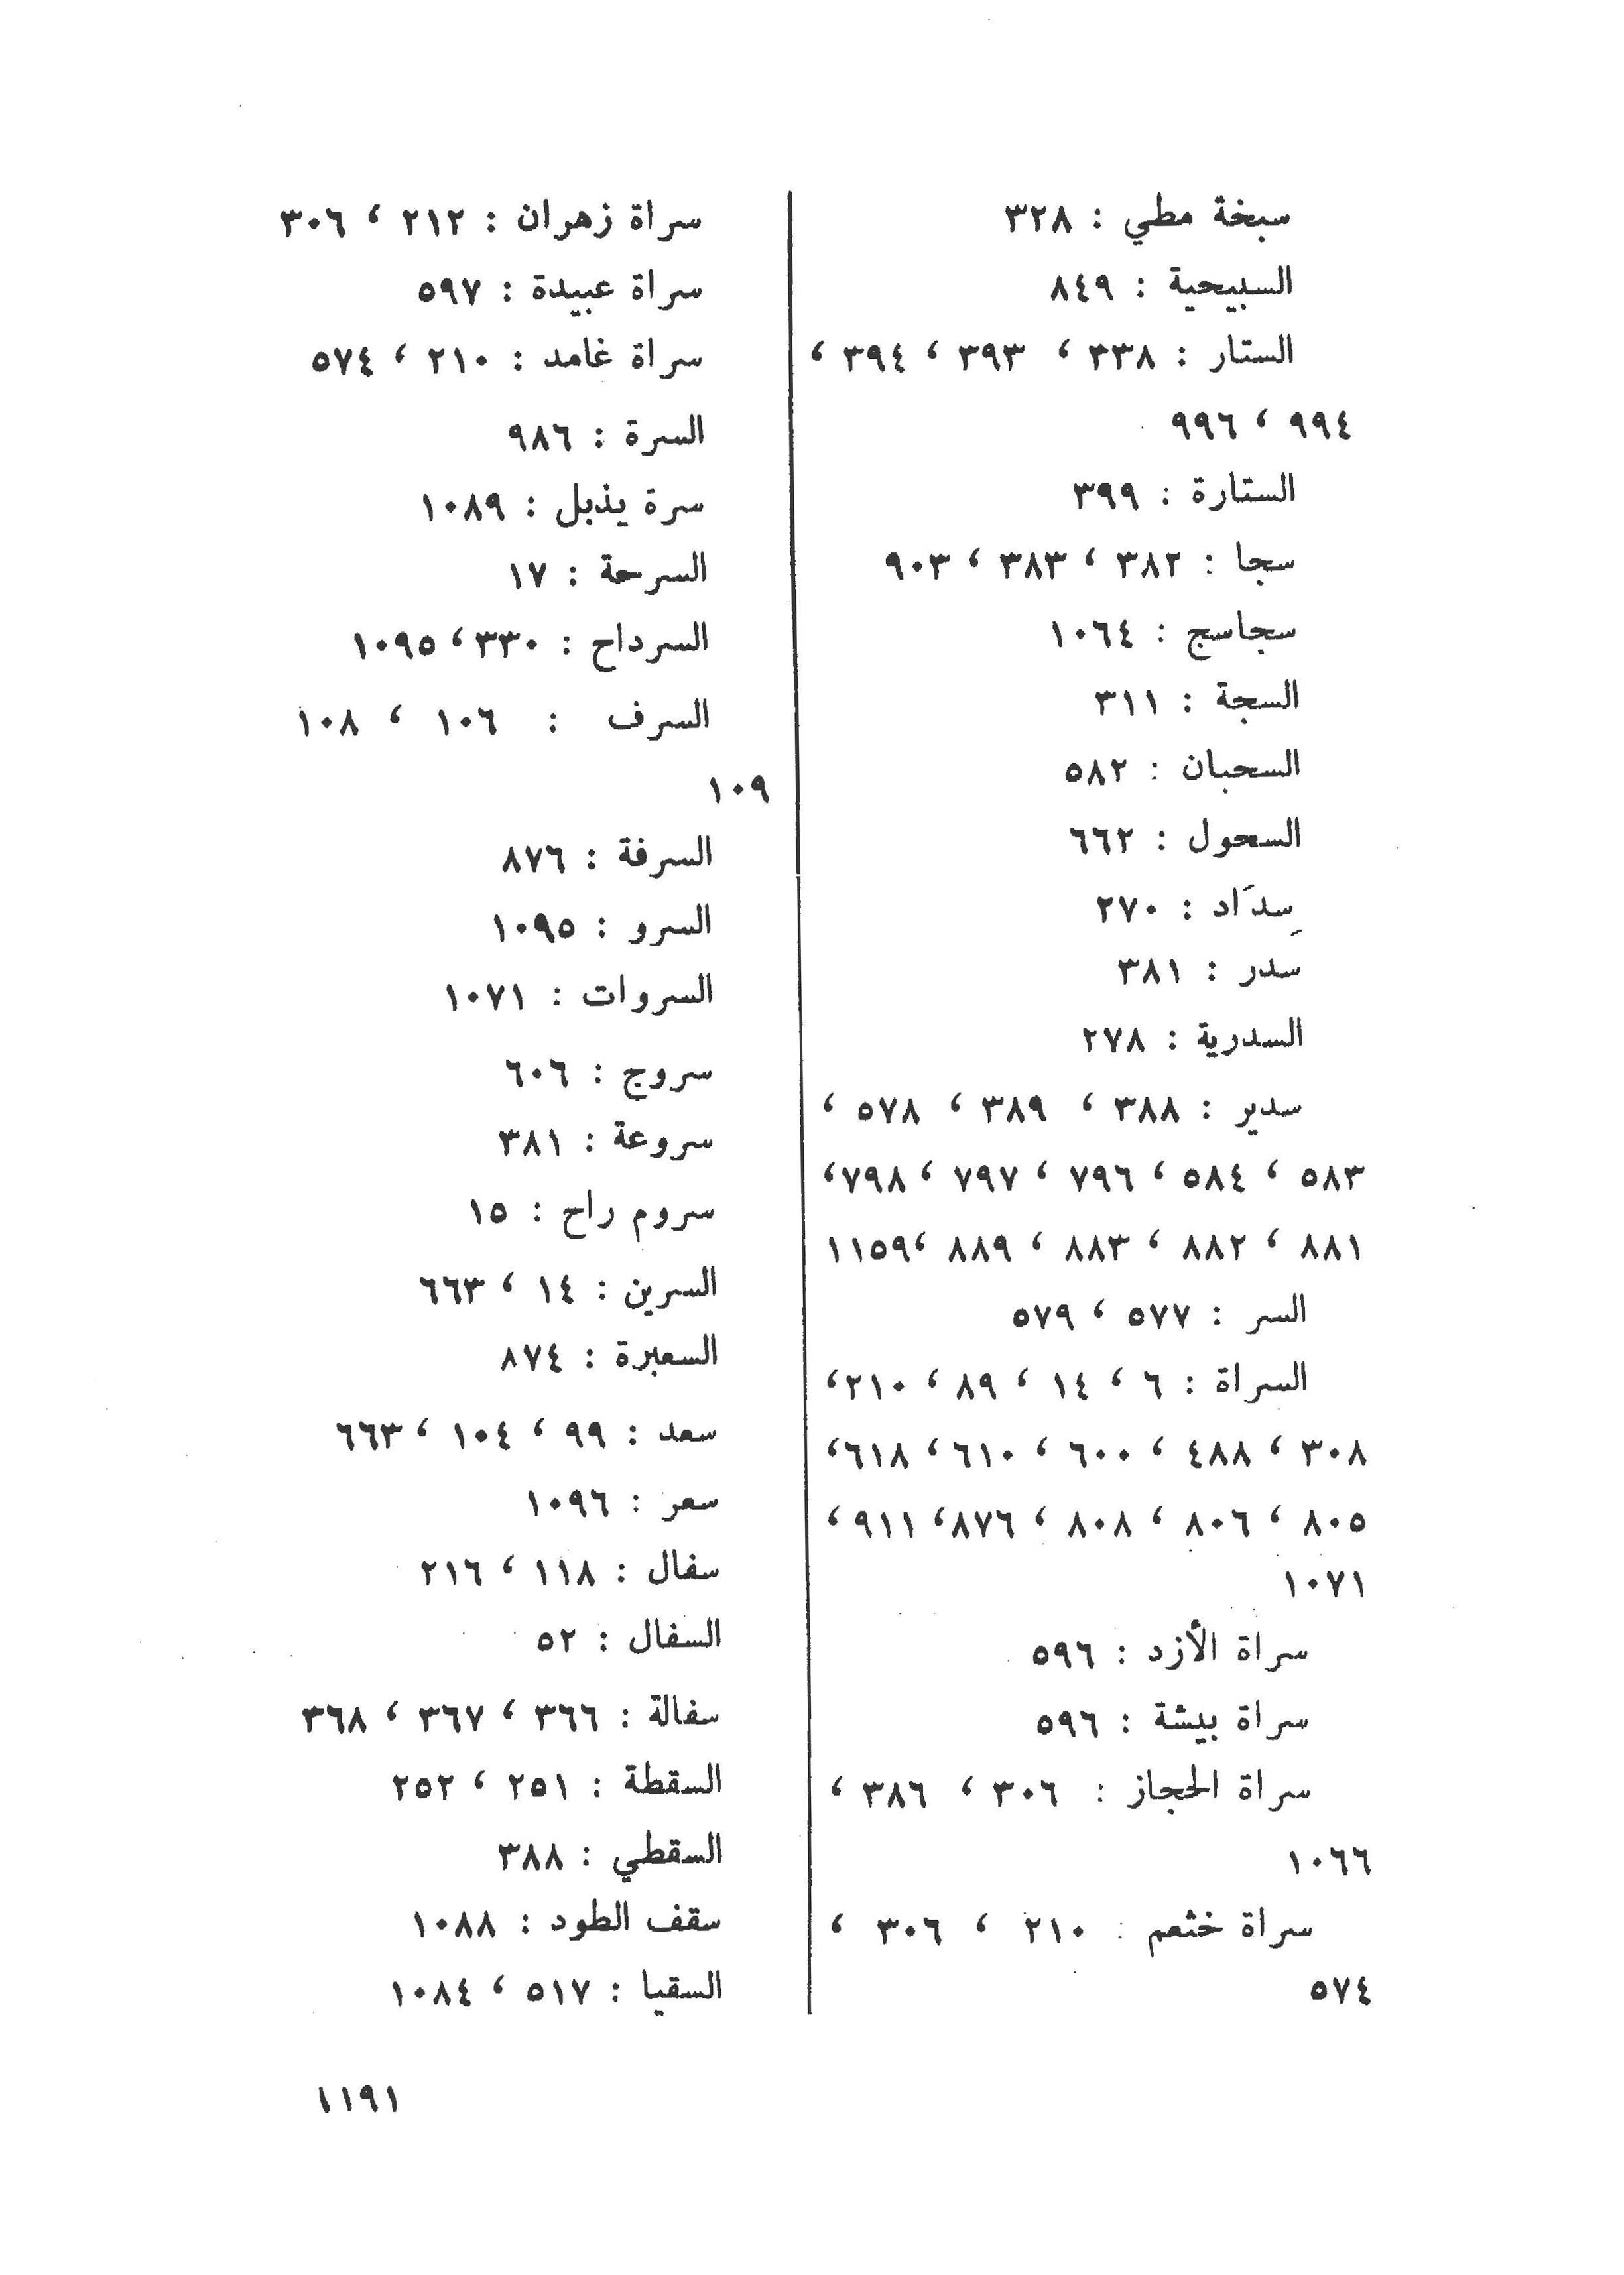 سبخة مطي : ٣٢٨
السبيحية : ٨٤٩
الستار : ٣٣٨ ، ٣٩٣ ، ٣٩٤ ،
٩٩٤ ، ٩٩٦
الستارة : ٣٩٩
سجا : ٣٨٢ ، ٣٨٣ ، ٩٠٣
سجاسج : ١٠٦٤
السجة : ٣١١
السحبان : ٥٨٢
السحول : ٦٦٢
سِدَاد : ٢٧٠
سدر : ٣٨١
السدرية : ٢٧٨
سدير : ٣٨٨ ، ٣٨٩ ، ٥٧٨ ،
٥٨٣ ، ٥٨٤ ، ٧٩٦ ، ٧٩٧ ، ٧٩٨،
٨٨١ ، ٨٨٢ ، ٨٨٣ ، ٨٨٩ ،١١٥٩
السر : ٥٧٧ ، ٥٧٩
السراة : ٦ ، ١٤ ، ٨٩ ، ٢١٠،
٣٠٨ ، ٤٨٨ ، ٦٠٠ ، ٦١٠ ، ٦١٨،
٨٠٥ ، ٨٠٦ ، ٨٠٨ ، ٨٧٦، ٩١١ ،
١٠٧١
سراة الأزد : ٥٩٦
سراة بيشة : ٥٩٦
سراة الحجاز : ٣٠٦ ، ٣٨٦ ،
١٠٦٦
سراة خثعم : ٢١٠ ، ٣٠٦ ،
٥٧٤
سراة زهران : ٢١٢ ، ٣٠٦
سراة عبيدة : ٥٩٧
سراة غامد : ٢١٠ ، ٥٧٤
السرة : ٩٨٦
سرة يذبل : ١٠٨٩
السرحة : ١٧
السرداح : ٣٣٠ ، ١٠٩٥
السرف : ١٠٦ ، ١٠٨
١٠٩
السرفة : ٨٧٦
السرو : ١٠٩٥
السروات : ١٠٧١
سروج : ٦٠٦
سروعة : ٣٨١
سروم راح : ١٥
السرين : ١٤ ، ٦٦٣
السعبرة : ٨٧٤
سعد : ٩٩ ، ١٠٤ ، ٦٦٣
سعر : ١٠٩٦
سفال : ١١٨ ، ٢١٦
السفال : ٥٢
سفالة : ٣٦٦ ، ٣٦٧ ، ٣٦٨
السقطة : ٢٥١ ، ٢٥٢
السقطي : ٣٨٨
سقف الطود : ١٠٨٨
السقيا : ٥١٧ ، ١٠٨٤
١١٩١